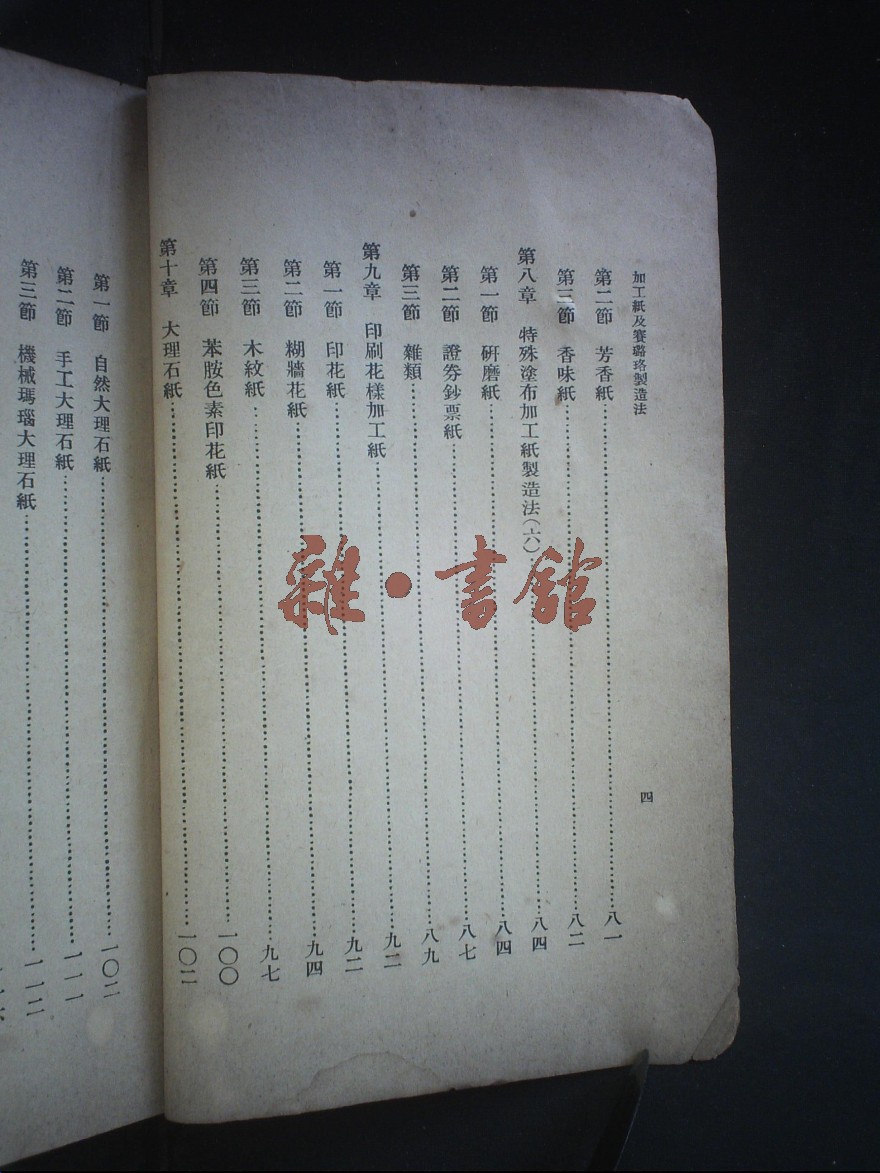 加工紙及賽璐珞製造法
四
第二節 芳香紙……八一
第三節 香味紙……八二
第八章 特殊塗布加工紙製造法(六)……八四
第一節 研磨紙……八四
第二節 證券鈔票紙……八七
第三節 雜類……八九
第九章 印刷花樣加工紙……九二
第一節 印花紙……九二
第二節 糊牆花紙……九四
第三節 木紋紙……九七
第四節 苯胺色素印花紙……一〇〇
第十章 大理石紙……一〇二
第一節 自然大理石紙……一〇二
第二節 手工大理石紙……一一一
第三節 機械瑪瑙大理石紙……一一二
雜·書館